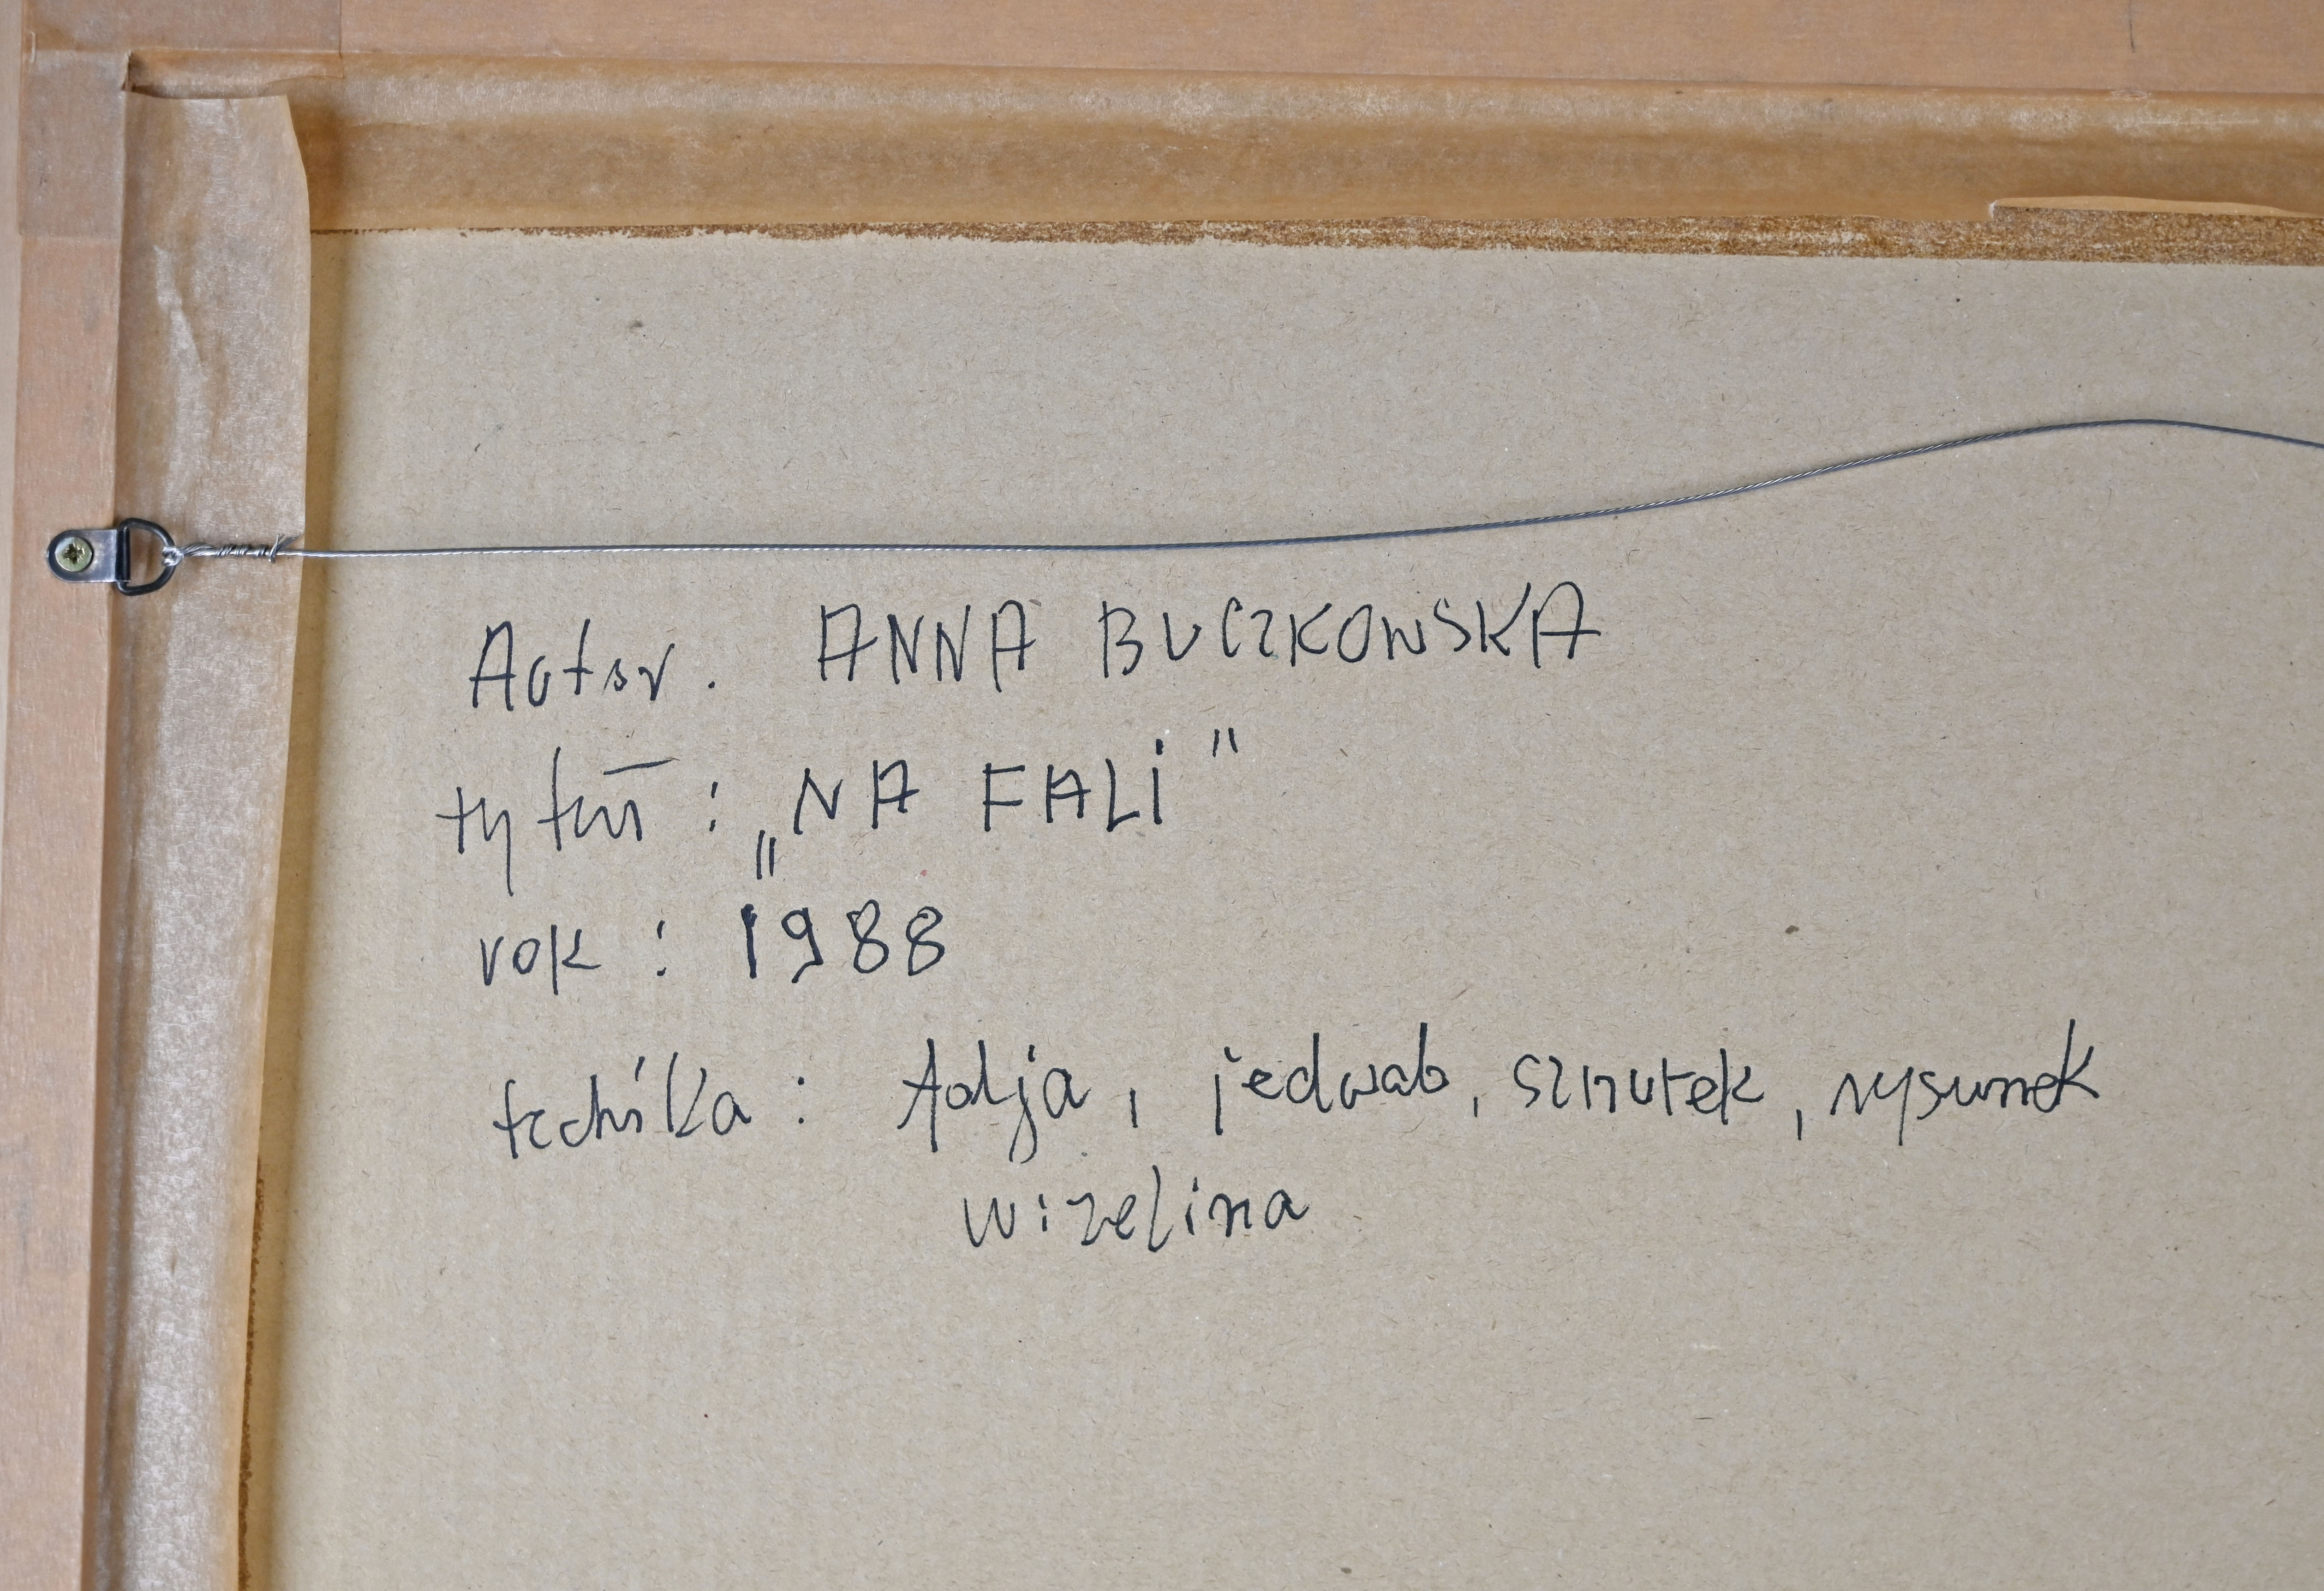 Autor. ANNA BUCZKOWSKA
tytuł : „NA FALI"
rok : 1988
technika : folja, jedwab, sznurek, rysunek
wizelina